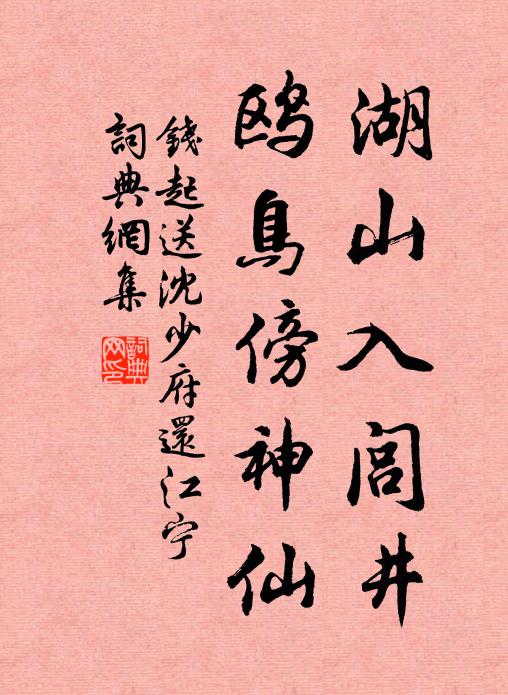 湖山入閭井
鸥鳥傍神仙
錢起送沈少府還江宁
詞典網集
詞典网印